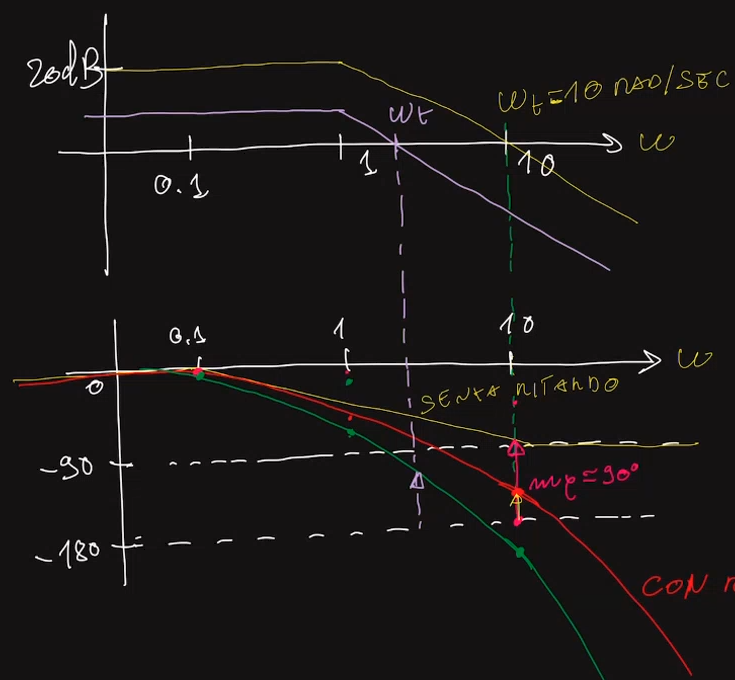 20dB
ωt
ωt=10 RAD/SEC
ω
0.1
1
10
0.1
1
10
ω
0
SENZA RITARDO
-90
mφ=90°
-180
CON